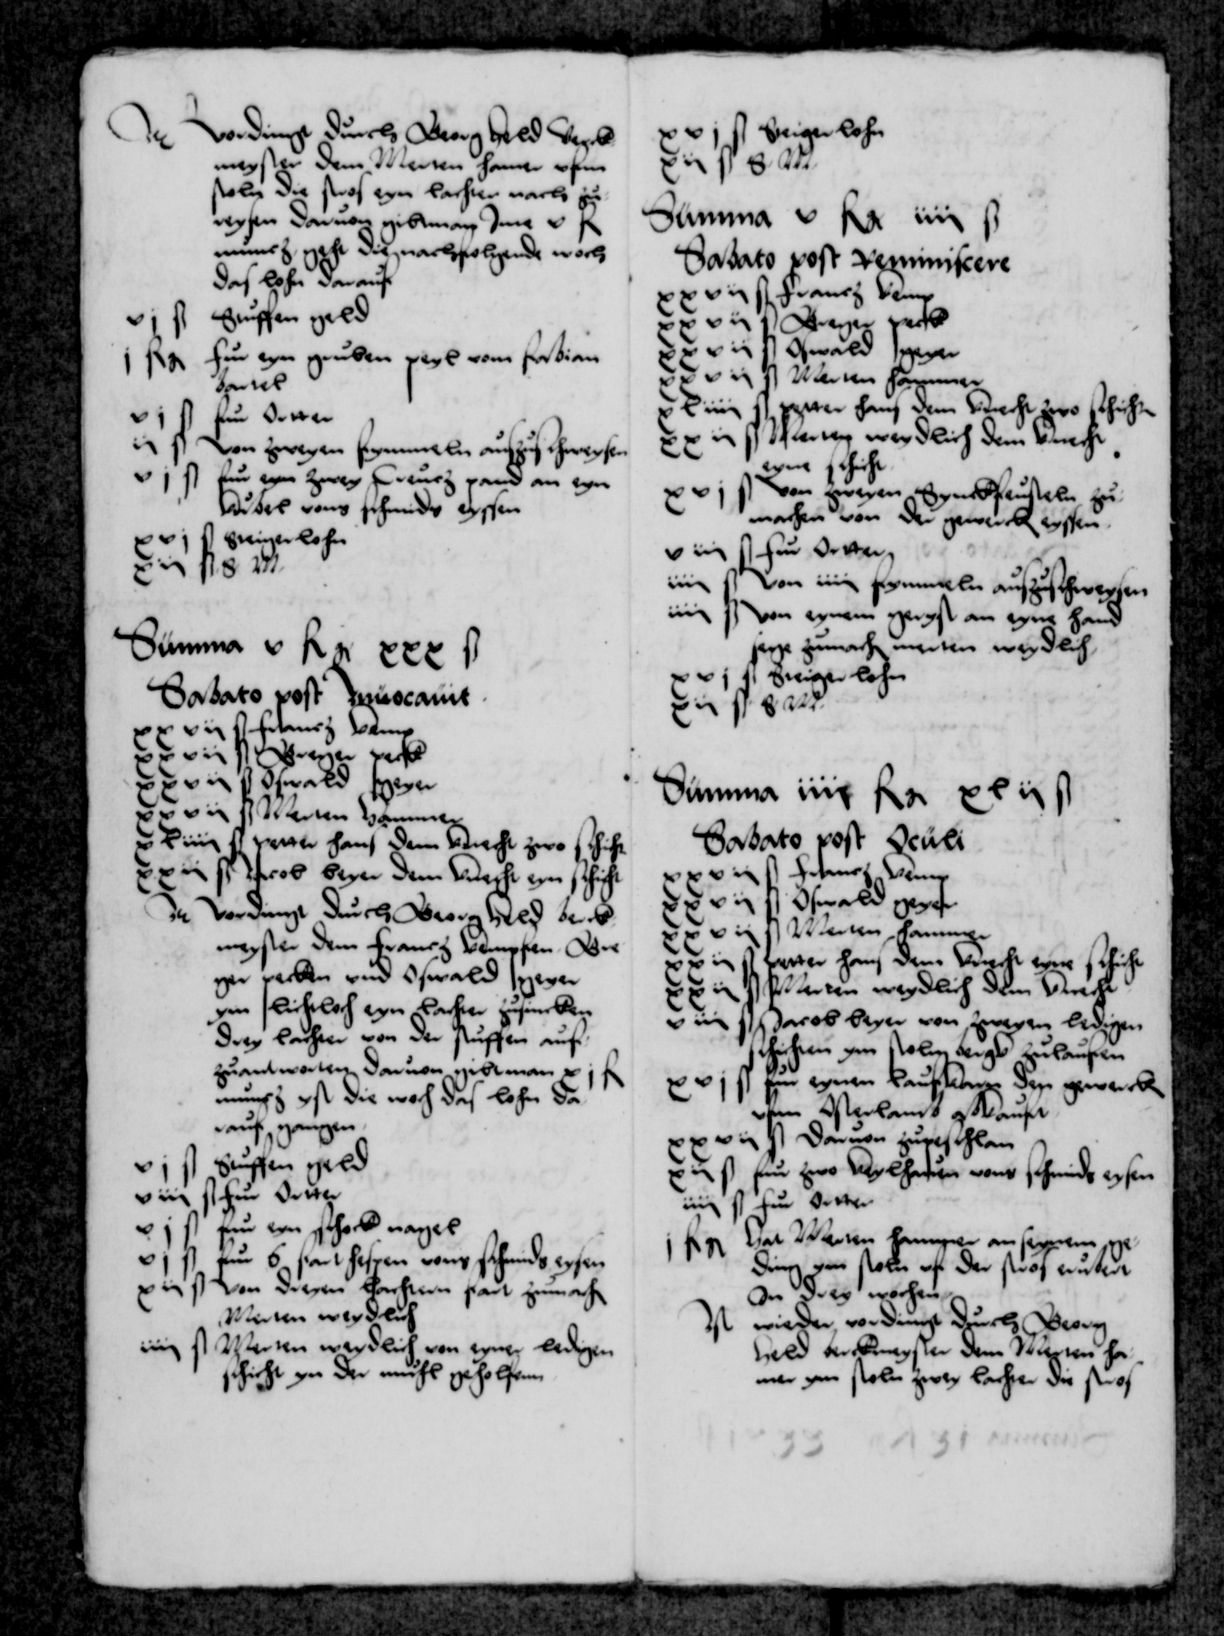 It vordingt durch Georg held berck
meyster dem Merten hamer vfmm
stoln die stros eyn lachter nach zu
reysen daruon gibtman Ime v fl
muncz geht die nachfolgende woch
das lohn darauf
vj ß Stuffen geld
j fl fur eyn gruben peyl vom fabian
bartel
vj ß fur Ortter
ij ß von zweyen fymmeln auszuschweysen
vj ß fur eyn zwey Creucz pand an eyn
kubel vons schmids eyssen
xvj ß Steigerlohn
xij ß S M
Summa v fl xxx ß
Sabato post Inuocauit
xxvij ß francz kemp
xxvij ß Greger peck
xxvij ß Oswald geyer
xxvij ß Merten hammer
xliiij ß petter hans dem knecht zwo schicht
xxij ß Jacob beyer dem knecht eyn schicht
It vordingt durch Georg held berck
meyster dem francz kempffen Gre
ger pecken vnd Oswald geyer
ym lichtloch eyn lachter zusincken
drey lachter von der stuffen auf
zuantworten daruon gibtman xj fl
muncz yst die woch das lohn da
rauf gangen
vj ß Stuffen geld
viij ß fur Ortter
vj ß fur eyn schock nagel
vj ß fur 6 fart hespen vons schmids eysen
xij ß von dreyen lachtern fart zumach
Merten weydlich
iiij ß Merten weydlich von eyner ledigen
schicht yn der muhl geholfenn
xvj ß Steigerlohn
xij ß S M
Summa v fl iiij ß
Sabato post Reminiscere
xxvij ß francz kemp
xxvij ß Greger peck
xxvij ß Oswald geyer
xxvij ß Merten hammer
xliiij ß petter hans dem knecht zwo schicht
xxij ß Merten weydlich dem knecht
eyne schicht
xvj ß von zweyen Synckfeusteln zu
machen von der gewerck eyssen
viij ß fur Ortter
iiij ß von iiij fymmeln auszuschweysen
iiij ß von eynem geryst an eyne hand
sege zumach merten weydlich
xvj ß Steigerlohn
xij ß S M
Summa iiij fl xlij ß
Sabato post Oculi
xxvij ß francz kemp
xxvij ß Oswald geyer
xxvij ß Merten hammer
xxij ß petter hans dem knecht eyne schicht
xxij ß Merten weydlich dem knecht
viij ß Jacob beyer von zweyen ledigen
schichten ym stoln bergk zulauffen
xvj ß fur eynen laufkarn den gewercken
vfm Osterlamb abkauft
xxvij ß daruon zupeschlan
xij ß fur zwo keylhauen vons schmids eysen
iiij ß fur Ortter
j fl hat Merten hammer an seynem ge
ding ym stoln vf der stros erubert
In drey wochen
It wieder vordingt durch Georg
held berckmeyster dem Merten ha
mer ym stoln zwey lachter die stros